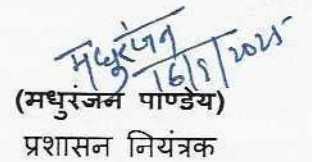 मधुरंजन
16/9/2025
(मधुरंजन पाण्डेय)
प्रशासन नियंत्रक